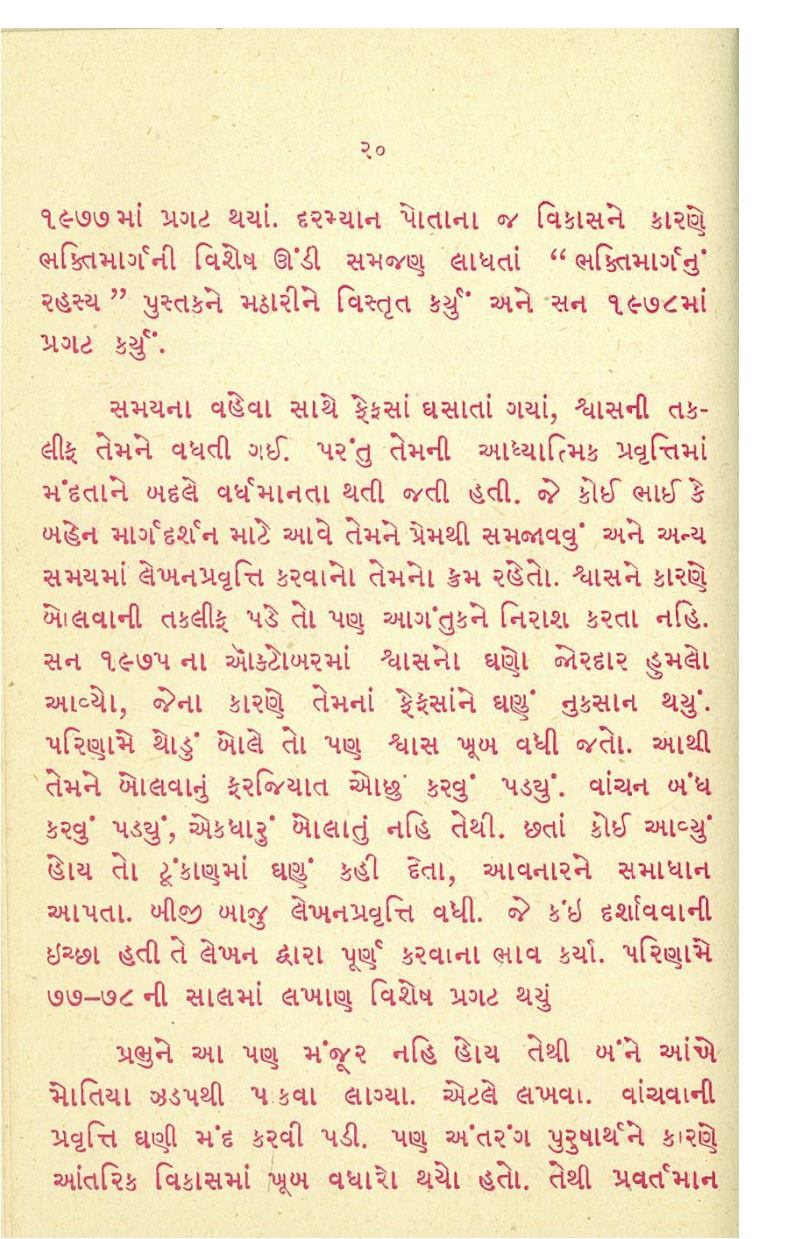 ૨૦
૧૯૭૭માં પ્રગટ થયાં. દરમ્યાન પોતાના જ વિકાસને કારણે
ભક્તિમાર્ગની વિશેષ ઊંડી સમજણ લાધતાં “ ભક્તિમાર્ગનું
રહસ્ય ” પુસ્તકને મઠારીને વિસ્તૃત કર્યું અને સન ૧૯૭૮માં
પ્રગટ કર્યું.
સમયના વહેવા સાથે ફેફસાં ઘસાતાં ગયાં, શ્વાસની તક-
લીફ તેમને વધતી ગઈ. પરંતુ તેમની આધ્યાત્મિક પ્રવૃત્તિમાં
મંદતાને બદલે વર્ધમાનતા થતી જતી હતી. જે કોઈ ભાઈ કે
બહેન માર્ગદર્શન માટે આવે તેમને પ્રેમથી સમજાવવું અને અન્ય
સમયમાં લેખનપ્રવૃત્તિ કરવાનો તેમનો ક્રમ રહેતો. શ્વાસને કારણે
બોલવાની તકલીફ પડે તો પણ આગંતુકને નિરાશ કરતા નહિ.
સન ૧૯૭૫ ના ઑક્ટોબરમાં શ્વાસનો ઘણો જોરદાર હુમલો
આવ્યો, જેના કારણે તેમનાં ફેફસાંને ઘણું નુકસાન થયું.
પરિણામે થોડું બોલે તો પણ શ્વાસ ખૂબ વધી જતો. આથી
તેમને બોલવાનું ફરજિયાત ઓછું કરવું પડ્યું. વાંચન બંધ
કરવું પડ્યું, એકધારું બોલાતું નહિ તેથી. છતાં કોઈ આવ્યું
હોય તો ટૂંકાણમાં ઘણું કહી દેતા, આવનારને સમાધાન
આપતા. બીજી બાજુ લેખનપ્રવૃત્તિ વધી. જે કંઇ દર્શાવવાની
ઇચ્છા હતી તે લેખન દ્વારા પૂર્ણ કરવાના ભાવ કર્યા. પરિણામે
૭૭–૭૮ ની સાલમાં લખાણ વિશેષ પ્રગટ થયું
પ્રભુને આ પણ મંજૂર નહિ હોય તેથી બંને આંખે
મોતિયા ઝડપથી પાકવા લાગ્યા. એટલે લખવા. વાંચવાની
પ્રવૃત્તિ ઘણી મંદ કરવી પડી. પણ અંતરંગ પુરુષાર્થને કારણે
આંતરિક વિકાસમાં ખૂબ વધારો થયો હતો. તેથી પ્રવર્તમાન